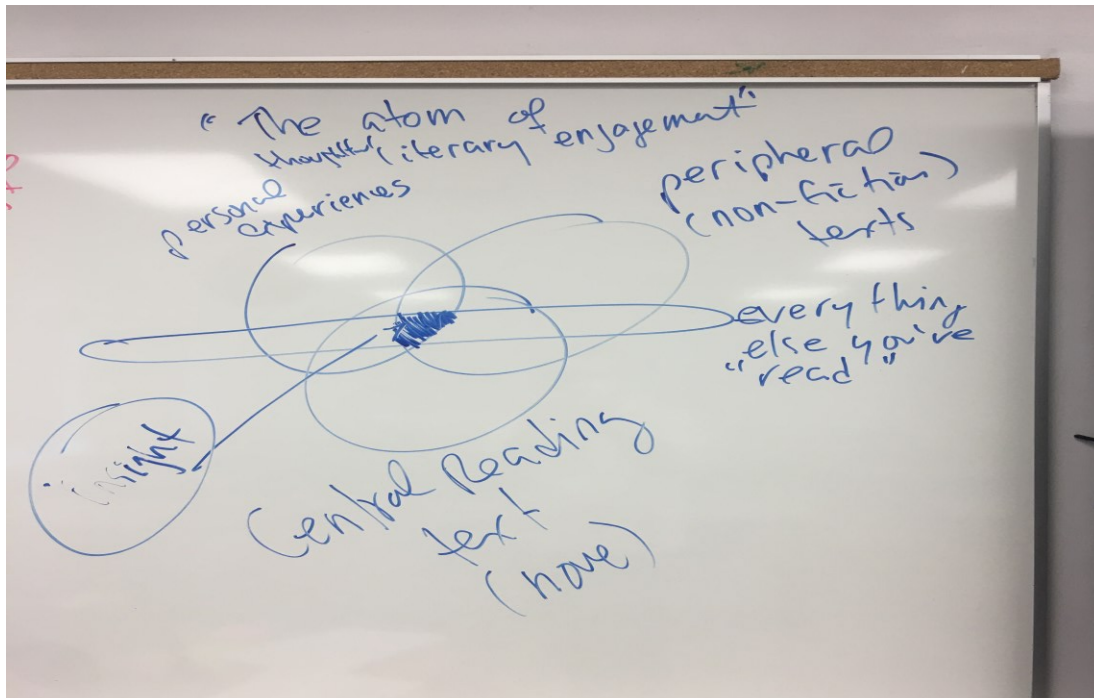 "The atom of
thoughtful literary engagement"
personal
experiences
peripheral
(non-fiction)
texts
everything
else you've
"read"
insight
Central Reading
text
(nove)